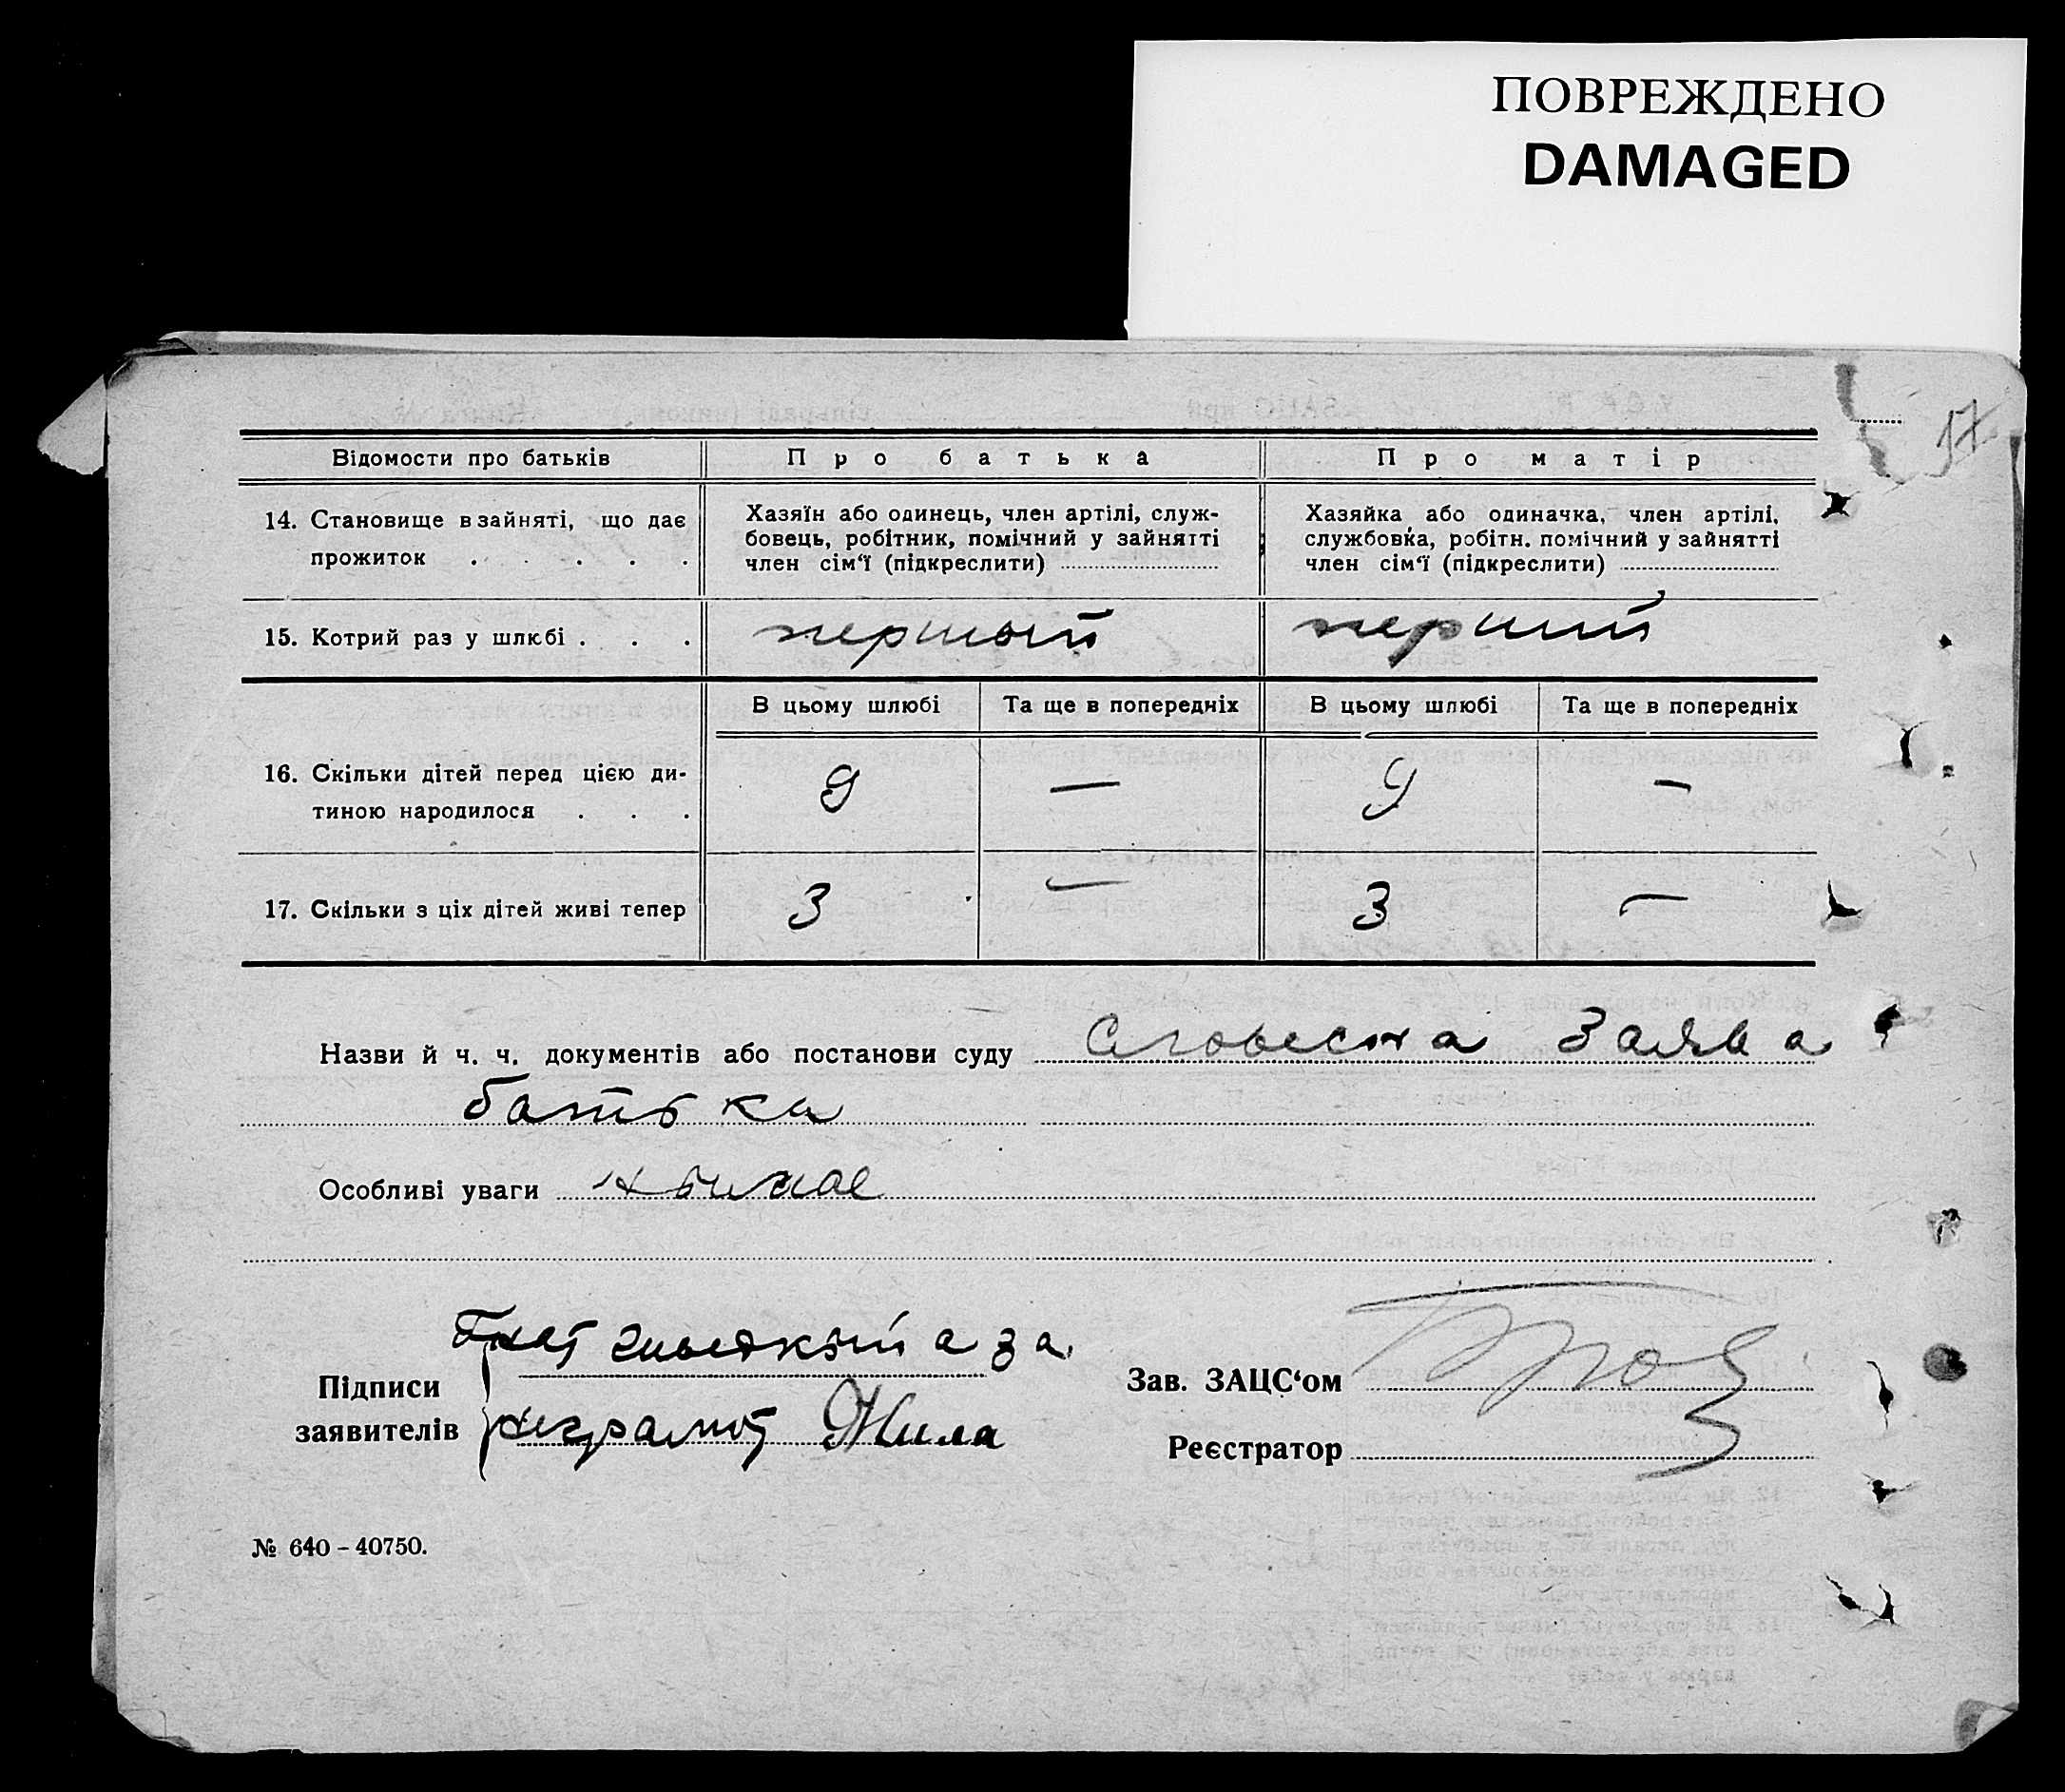 ПОВРЕЖДЕНО
DAMAGED
17
Відомости про батьків
Про батька
Про матір
14. Становище в зайняті, що дає
прожиток . . . . .
Хазяїн або одинець, член артілі, служ-
бовець, робітник, помічний у зайнятті
член сім‘ї (підкреслити)
Хазяйка або одиначка, член артілі,
службовка, робітн. помічний у зайнятті
член сім‘ї (підкреслити)
15. Котрий раз у шлюбі . . .
першый
перший
В цьому шлюбі
Та ще в попередніх
В цьому шлюбі
Та ще в попередніх
16. Скільки дітей перед цією ди-
тиною народилося . . .
9 — 9 —
17. Скільки з ціх дітей живі тепер
3 — 3 —
Назви й ч. ч. документів або постанови суду Словесна Заява
батька
Особливі уваги
а за
Підписи
заявителів
неграмот Жила
Зав. ЗАЦС‘ом
Реєстратор
№ 640 – 40750.